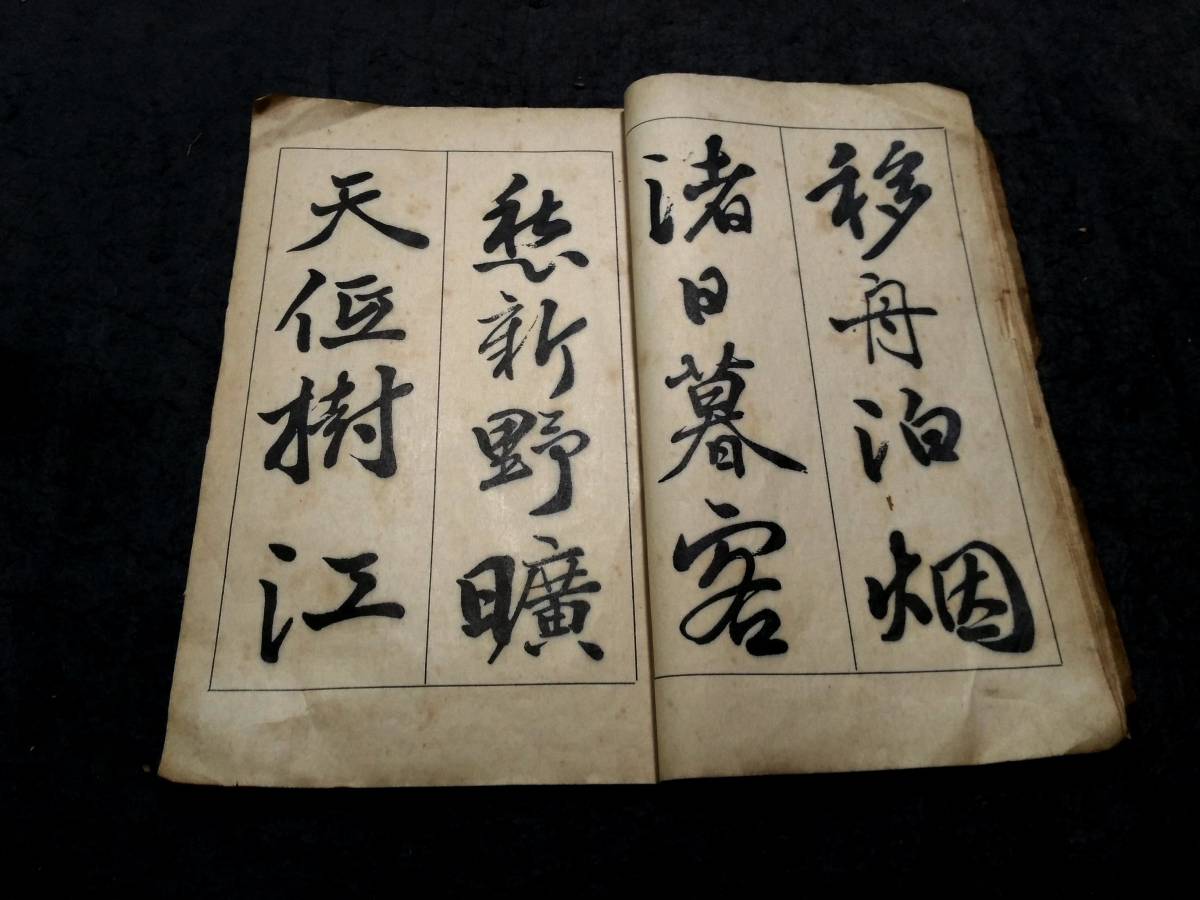 移舟泊烟
渚日暮客
愁新野曠
天低樹江